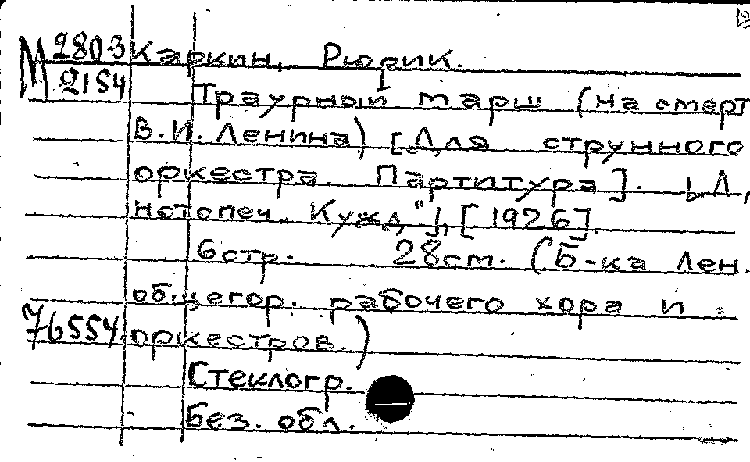 М 2803 Каркин, Рюрик.
2154 Траурный марш (на смерт
В.И. Ленина) [Для струнного
оркестра Партитура]. Л,
нотопеч. "], [1926].
6стр. 28см. (Б-ка Лен.
общегор. рабочего хора и
76554 оркестров.)
Стеклогр.
Без. обл.